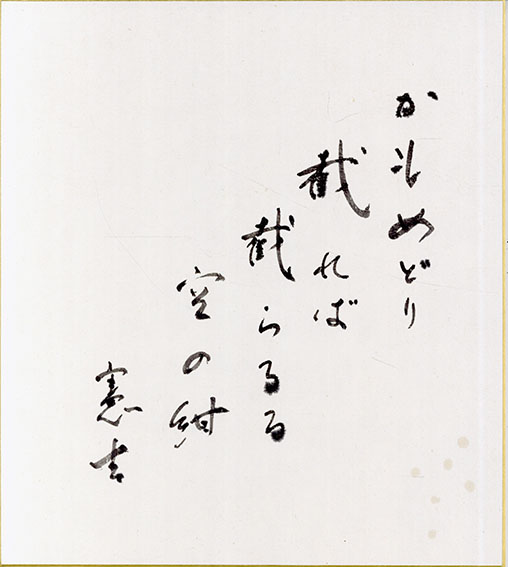 かもめどり
截れば
截らるる
空の紺
憲吉